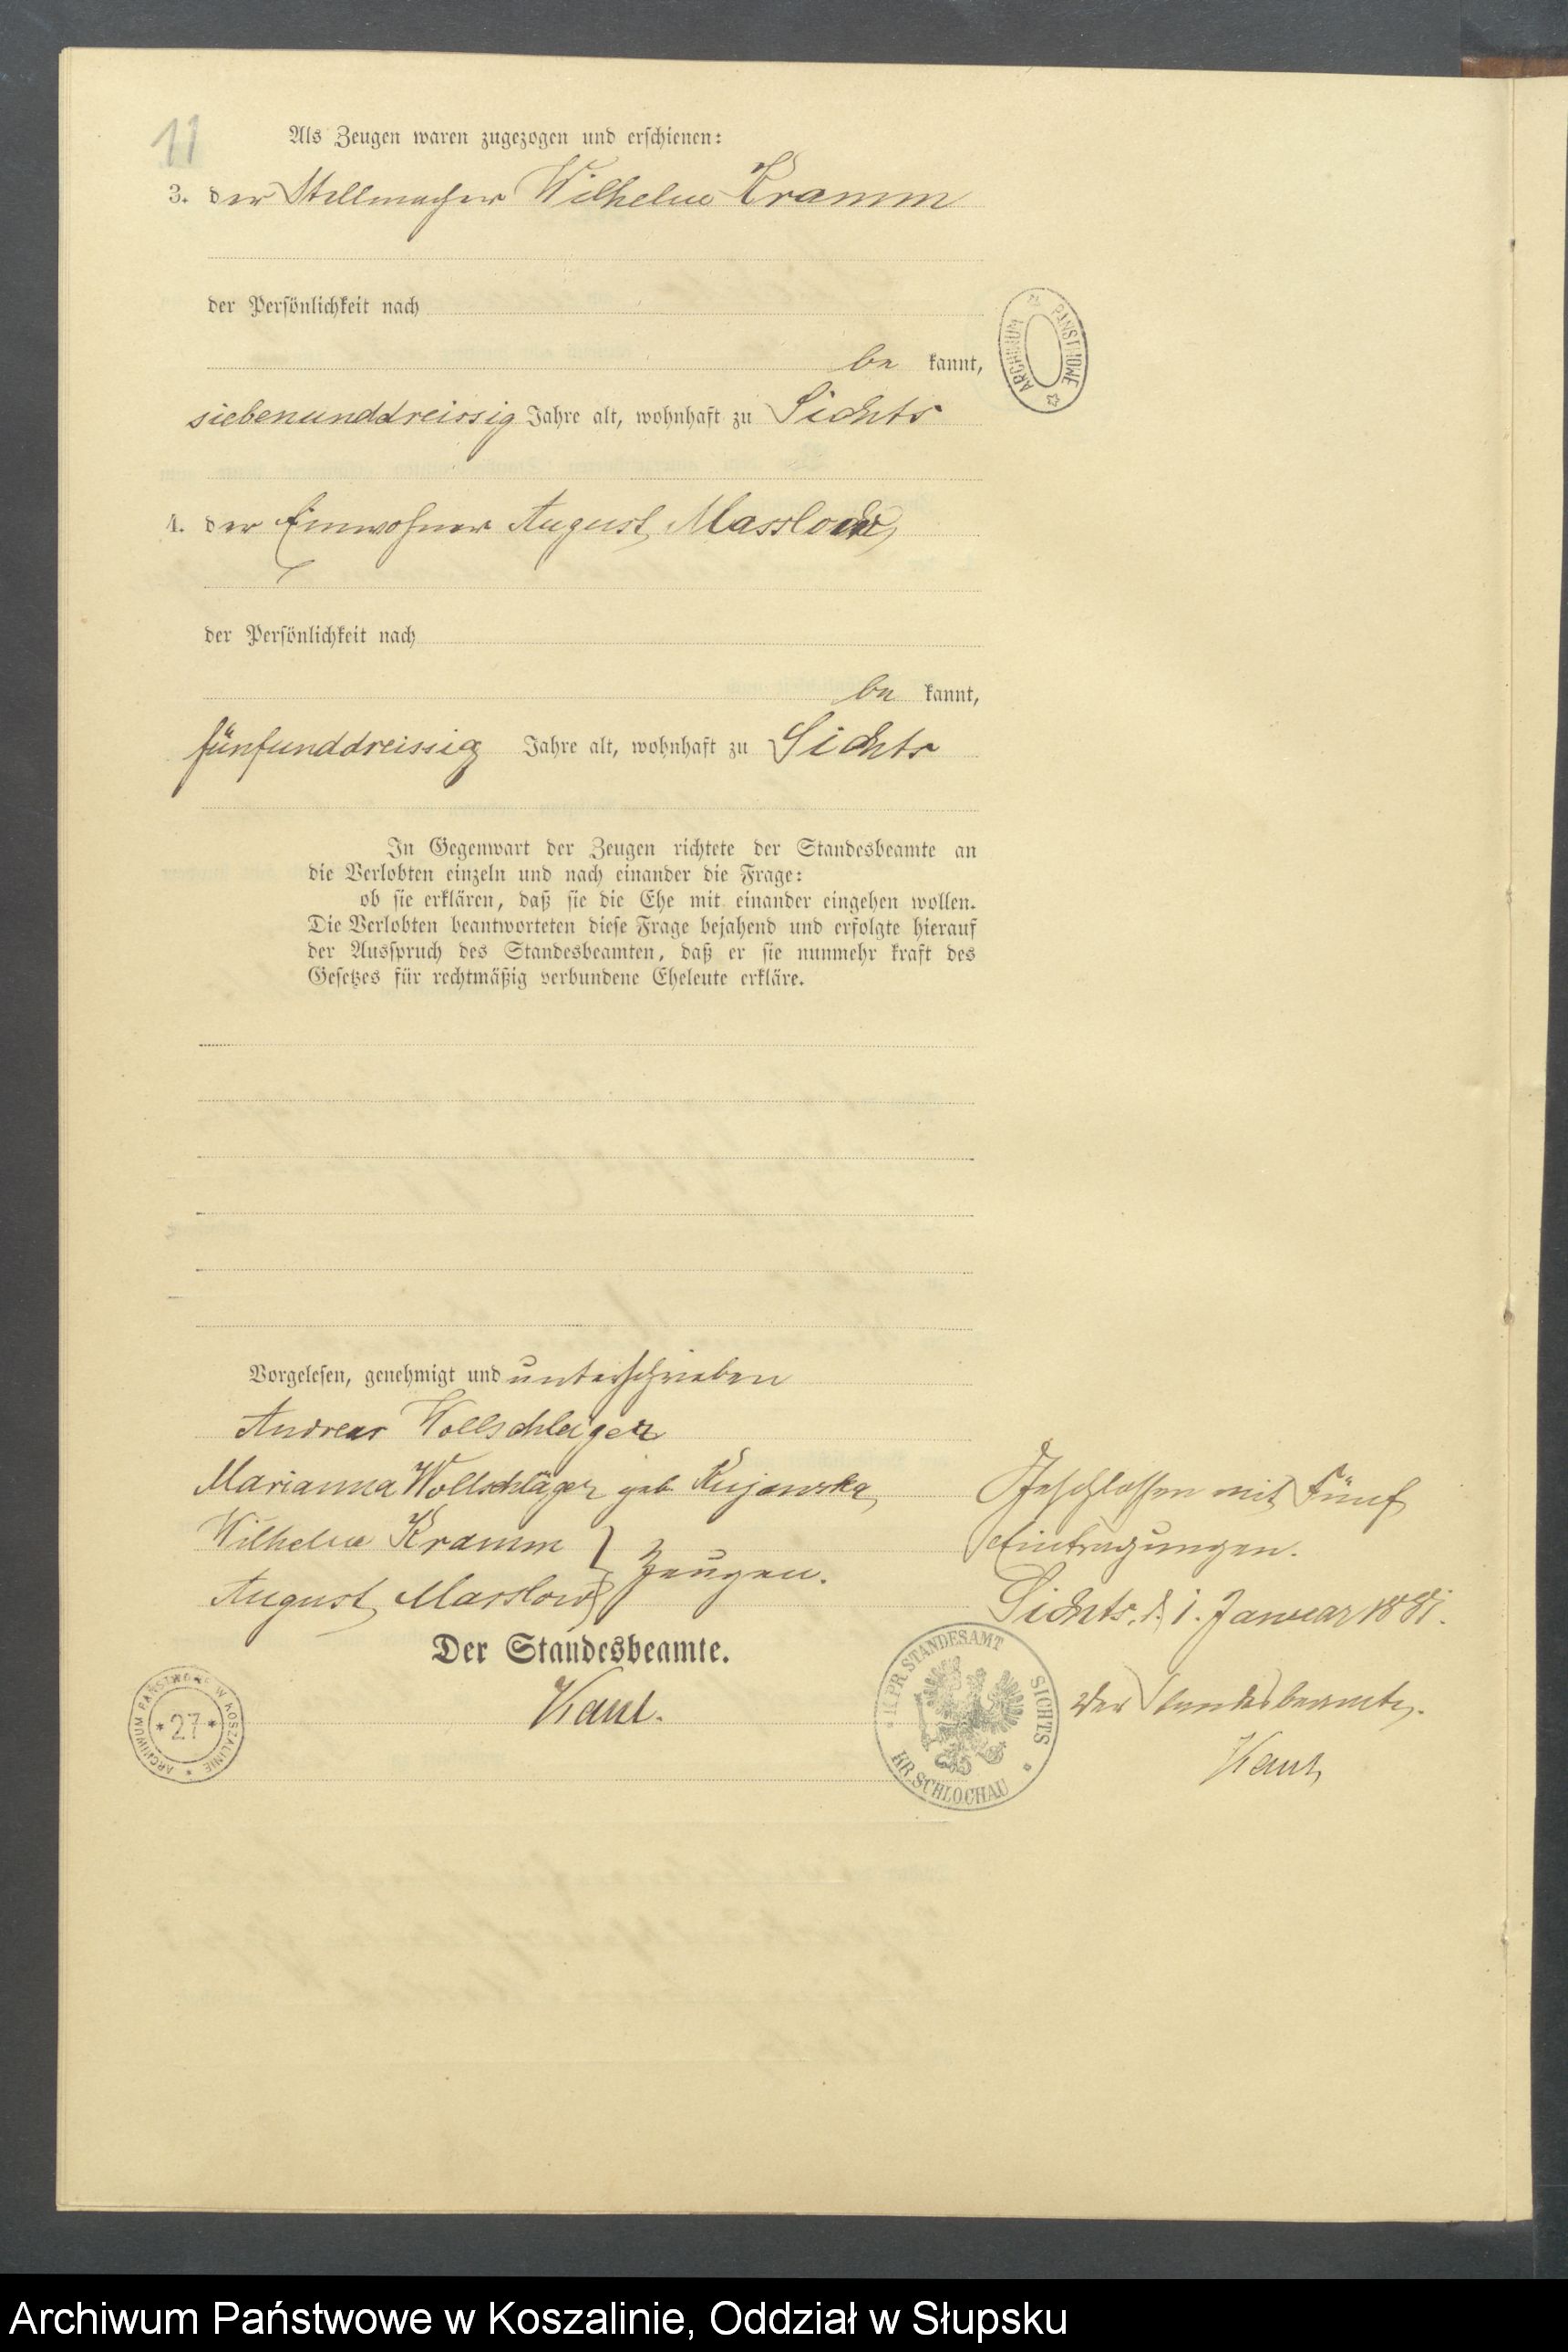 11
Als Zeugen waren zugezogen und erschienen:
3. der Stellmacher Wilhelm Kramm
der Persönlichkeit nach
be kannt,
siebenunddreissig Jahre alt, wohnhaft zu Sichts
4. der Einwohner August Masslow
der Persönlichkeit nach
be kannt,
fünfunddreissig Jahre alt, wohnhaft zu Sichts
In Gegenwart der Zeugen richtete der Standesbeamte an
die Verlobten einzeln und nach einander die Frage:
ob sie erklären, daß sie die Ehe mit einander eingehen wollen.
Die Verlobten beantworteten diese Frage bejahend und erfolgte hierauf
der Ausspruch des Standesbeamten, daß er sie nunmehr kraft des
Gesetzes für rechtmäßig verbundene Eheleute erkläre.
Vorgelesen, genehmigt und unterschrieben
Andreas Wollschleiger
Marianna Wollschläger geb Kujawska
Wilhelm Kramm
August Masslow } Zeugen.
Der Standesbeamte.
Kaut.
Geschlossen mit fünf
Eintragungen.
Sichts, d. 1. Januar 1881.
Der Standesbeamte.
Kaut
ARCHIWUM PAŃSTWOWE
ARCHIWUM PAŃSTWOWE W KOSZALINIE
* 27 *
K.PR.STANDESAMT SICHTS
KR.SCHLOCHAU
Archiwum Państwowe w Koszalinie, Oddział w Słupsku